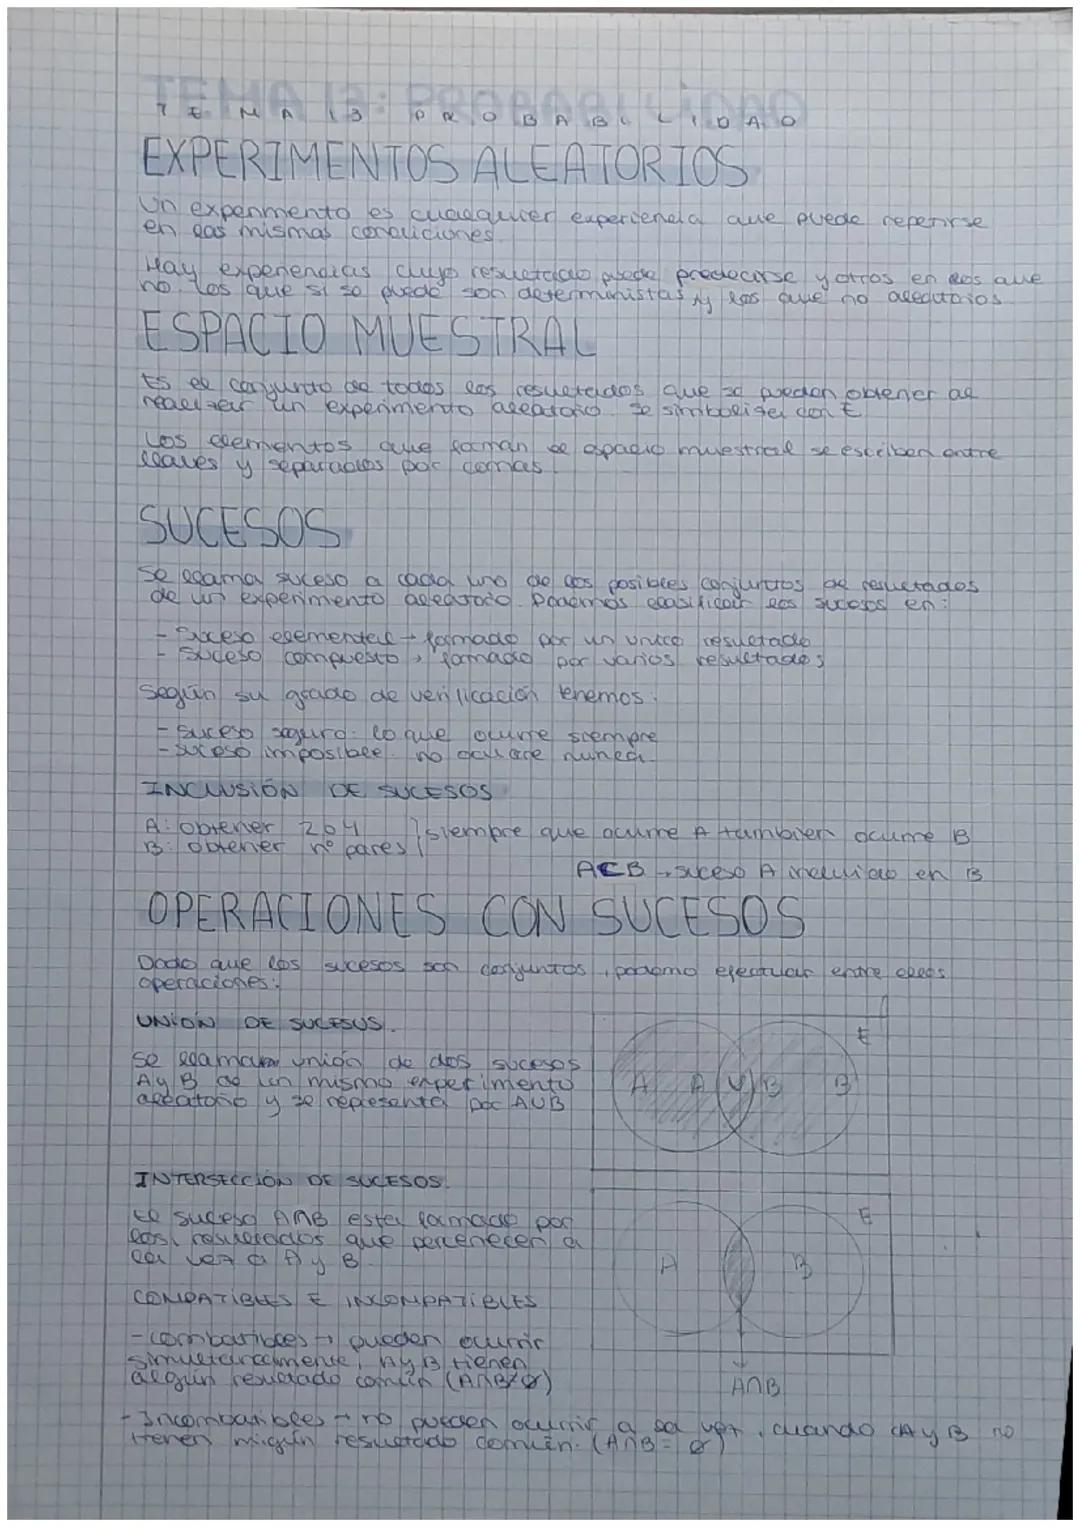 TEMA 13: PROBABILIDAD
EXPERIMENTOS ALEATORIOS
Un experimento es cualquier experiencia que puede repetirse
en las mismas condiciones.
Hay experiencias cuyo resultado puede predecirse y otros en los que
no. Los que si se puede son deterministas y los que no aleatorios.
ESPACIO MUESTRAL
Es el conjunto de todos los resultados que se puedan obtener al
realizar un experimento aleatorio. Se simboliza con E
Los elementos que forman el espacio muestral se escriben entre
llaves y separados por comas.
SUCESOS
Se llama suceso a cada uno de los posibles conjuntos de resultados
de un experimento aleatorio. Podemos clasificar los sucesos en:
- Suceso elemental → formado por un unico resultado
- Suceso compuesto → formado por varios resultados
Según su grado de verificación tenemos:
- Suceso seguro: lo que ocurre siempre
- Suceso imposible: no ocurre nunca.
INCLUSIÓN DE SUCESOS
A: obtener 2 o 4 } siempre que ocurre A tambien ocurre B
B: obtener nº pares
A⊂B → suceso A incluido en B
OPERACIONES CON SUCESOS
Dado que los sucesos son conjuntos, podemo efectuar entre ellos
operaciones:
UNIÓN DE SUCESOS.
Se llama unión de dos sucesos
A y B de un mismo experimento
aleatorio y se representa por AUB
E
A A y B B
INTERSECCIÓN DE SUCESOS.
El suceso A∩B esta formado por
los resultados que pertenecen a
la vez a A y B.
E
A B
A∩B
COMPATIBLES E INCOMPATIBLES
- combatibles → pueden ocurrir
simultaneamente, A y B tienen
algún resultado común (A∩B≠Ø)
- Incombatibles → no pueden ocurrir a la vez, cuando A y B no
tienen nigún resultado común. (A∩B = Ø)